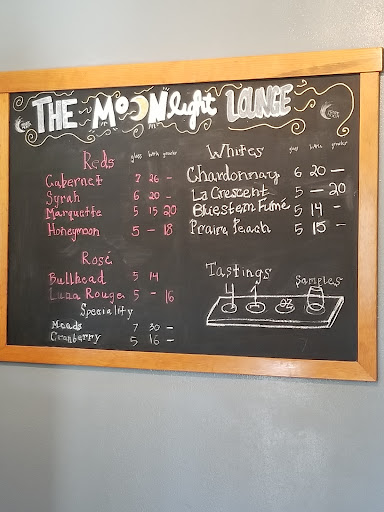 THE MOONlight LOUNGE
Reds glass bottle growler
Cabernet 7 26 -
Syrah 6 20 -
Marquette 5 15 20
Honeymoon 5 - 18
Rosé
Bullhead 5 14
Luna Rouge 5 - 16
Speciality
Meads 7 30 -
Cranberry 5 16 -
Whites glass bottle growler
Chardonnay 6 20 -
La Crescent 5 - 20
Bluestem Fumé 5 14 -
Prairie Peach 5 15 -
Tastings
4 1 oz samples